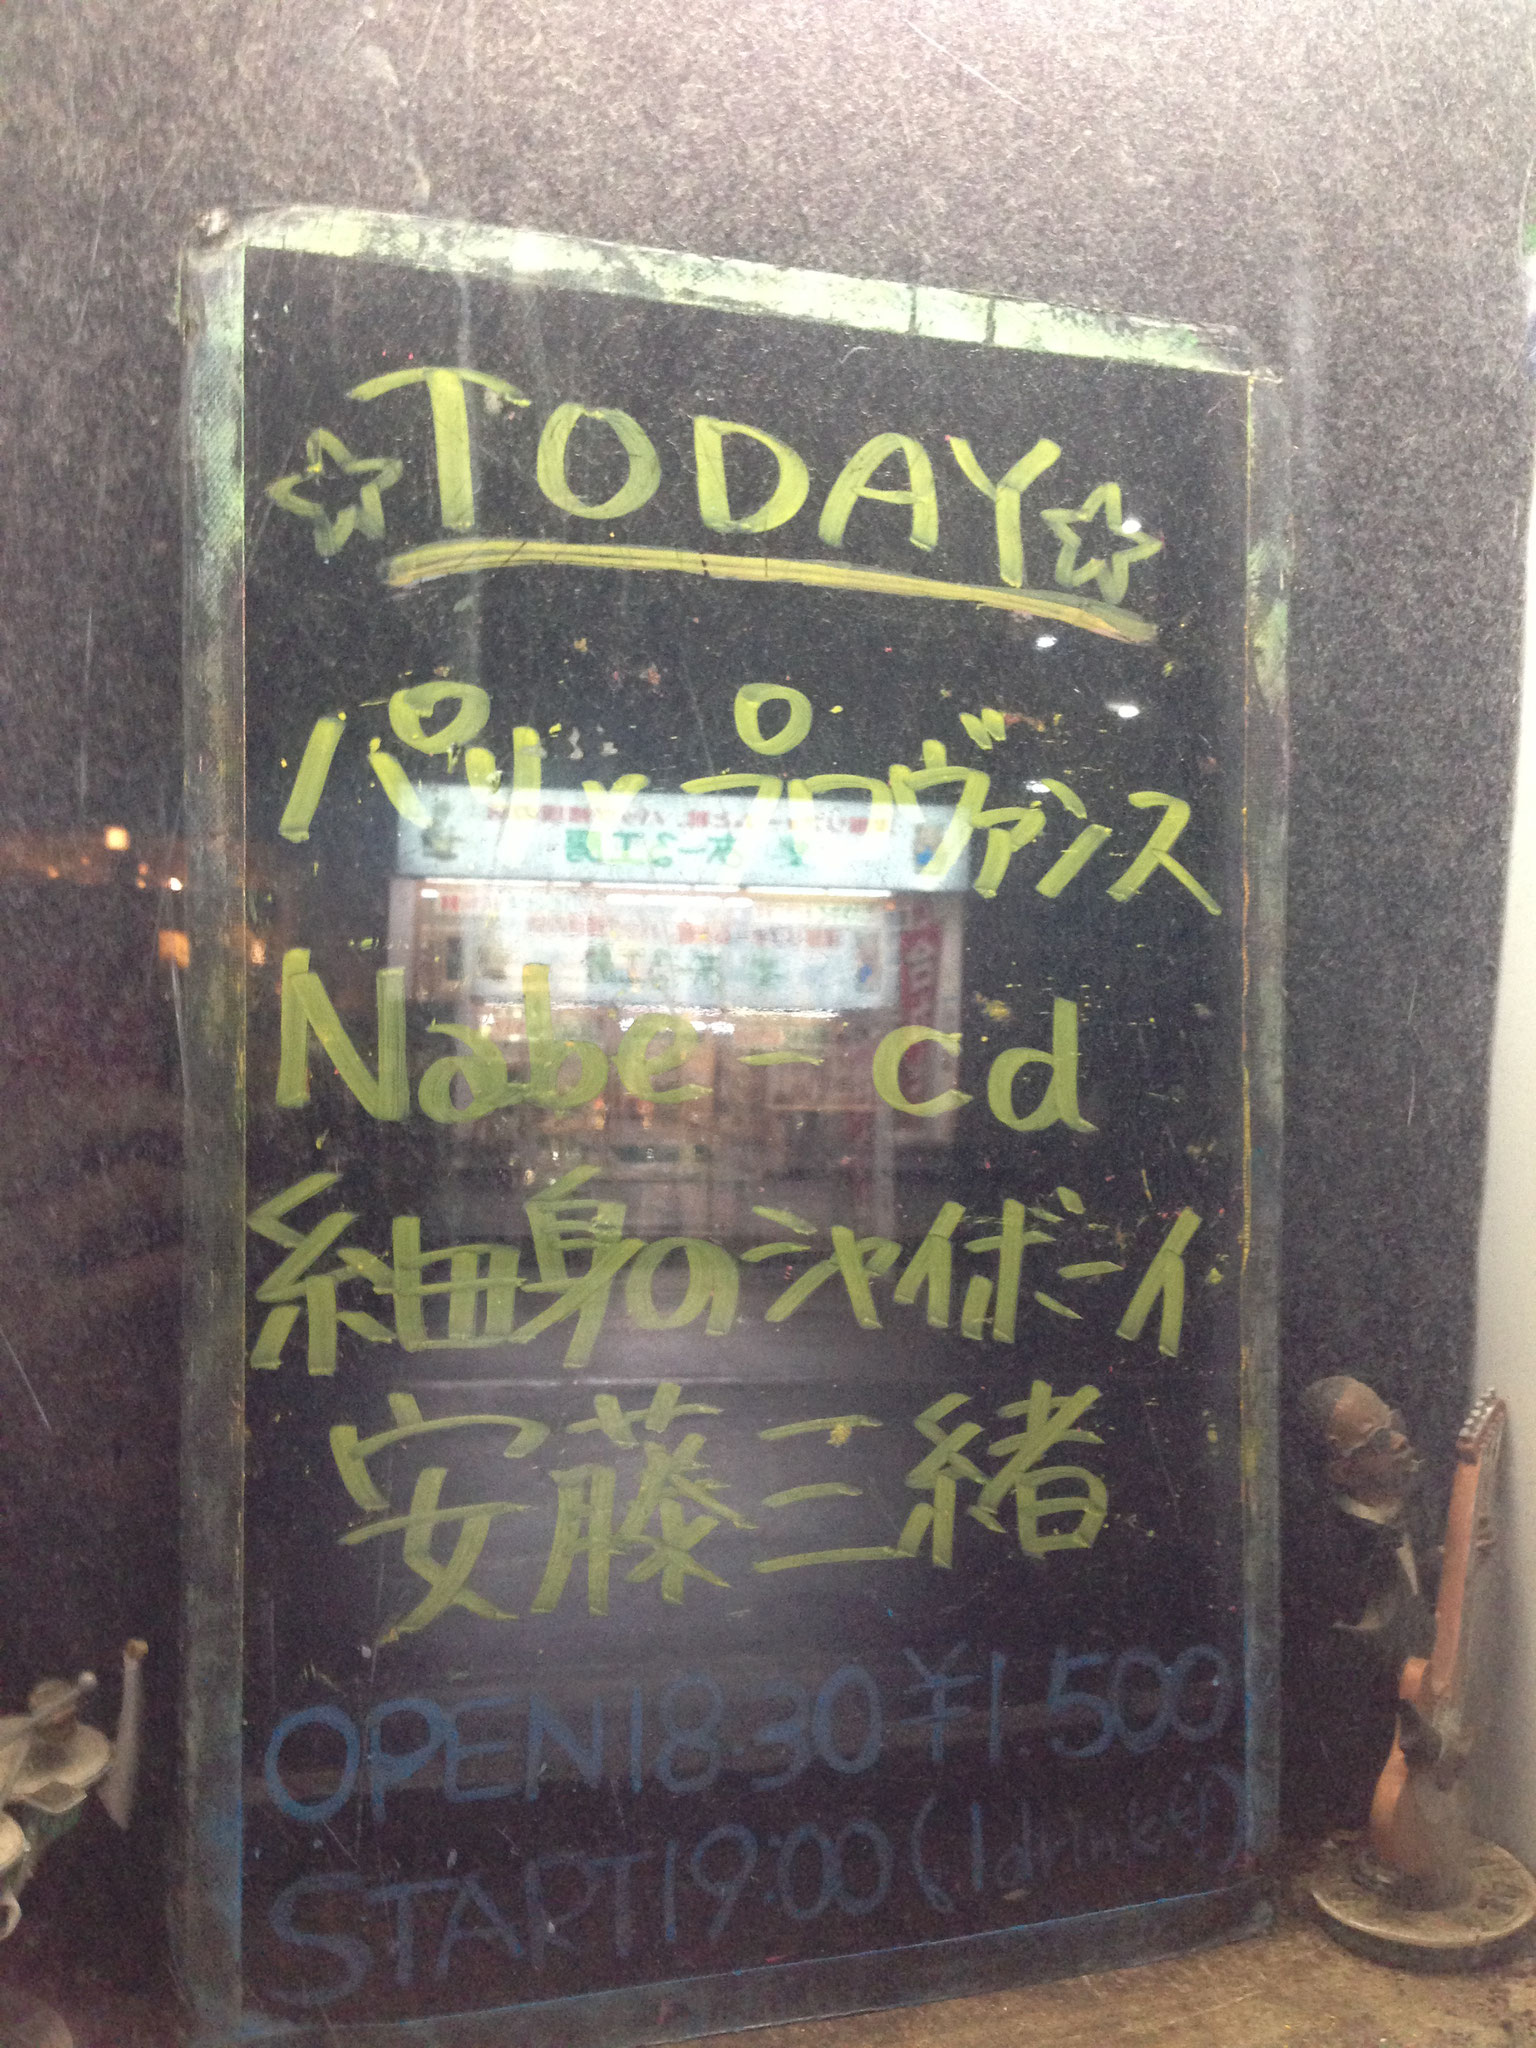 ☆TODAY☆
パリ、プロヴァンス
Nabe-cd
細身のシャイボーイ
安藤三緒
OPEN18:30 ¥1.500
START19:00(1drink付)